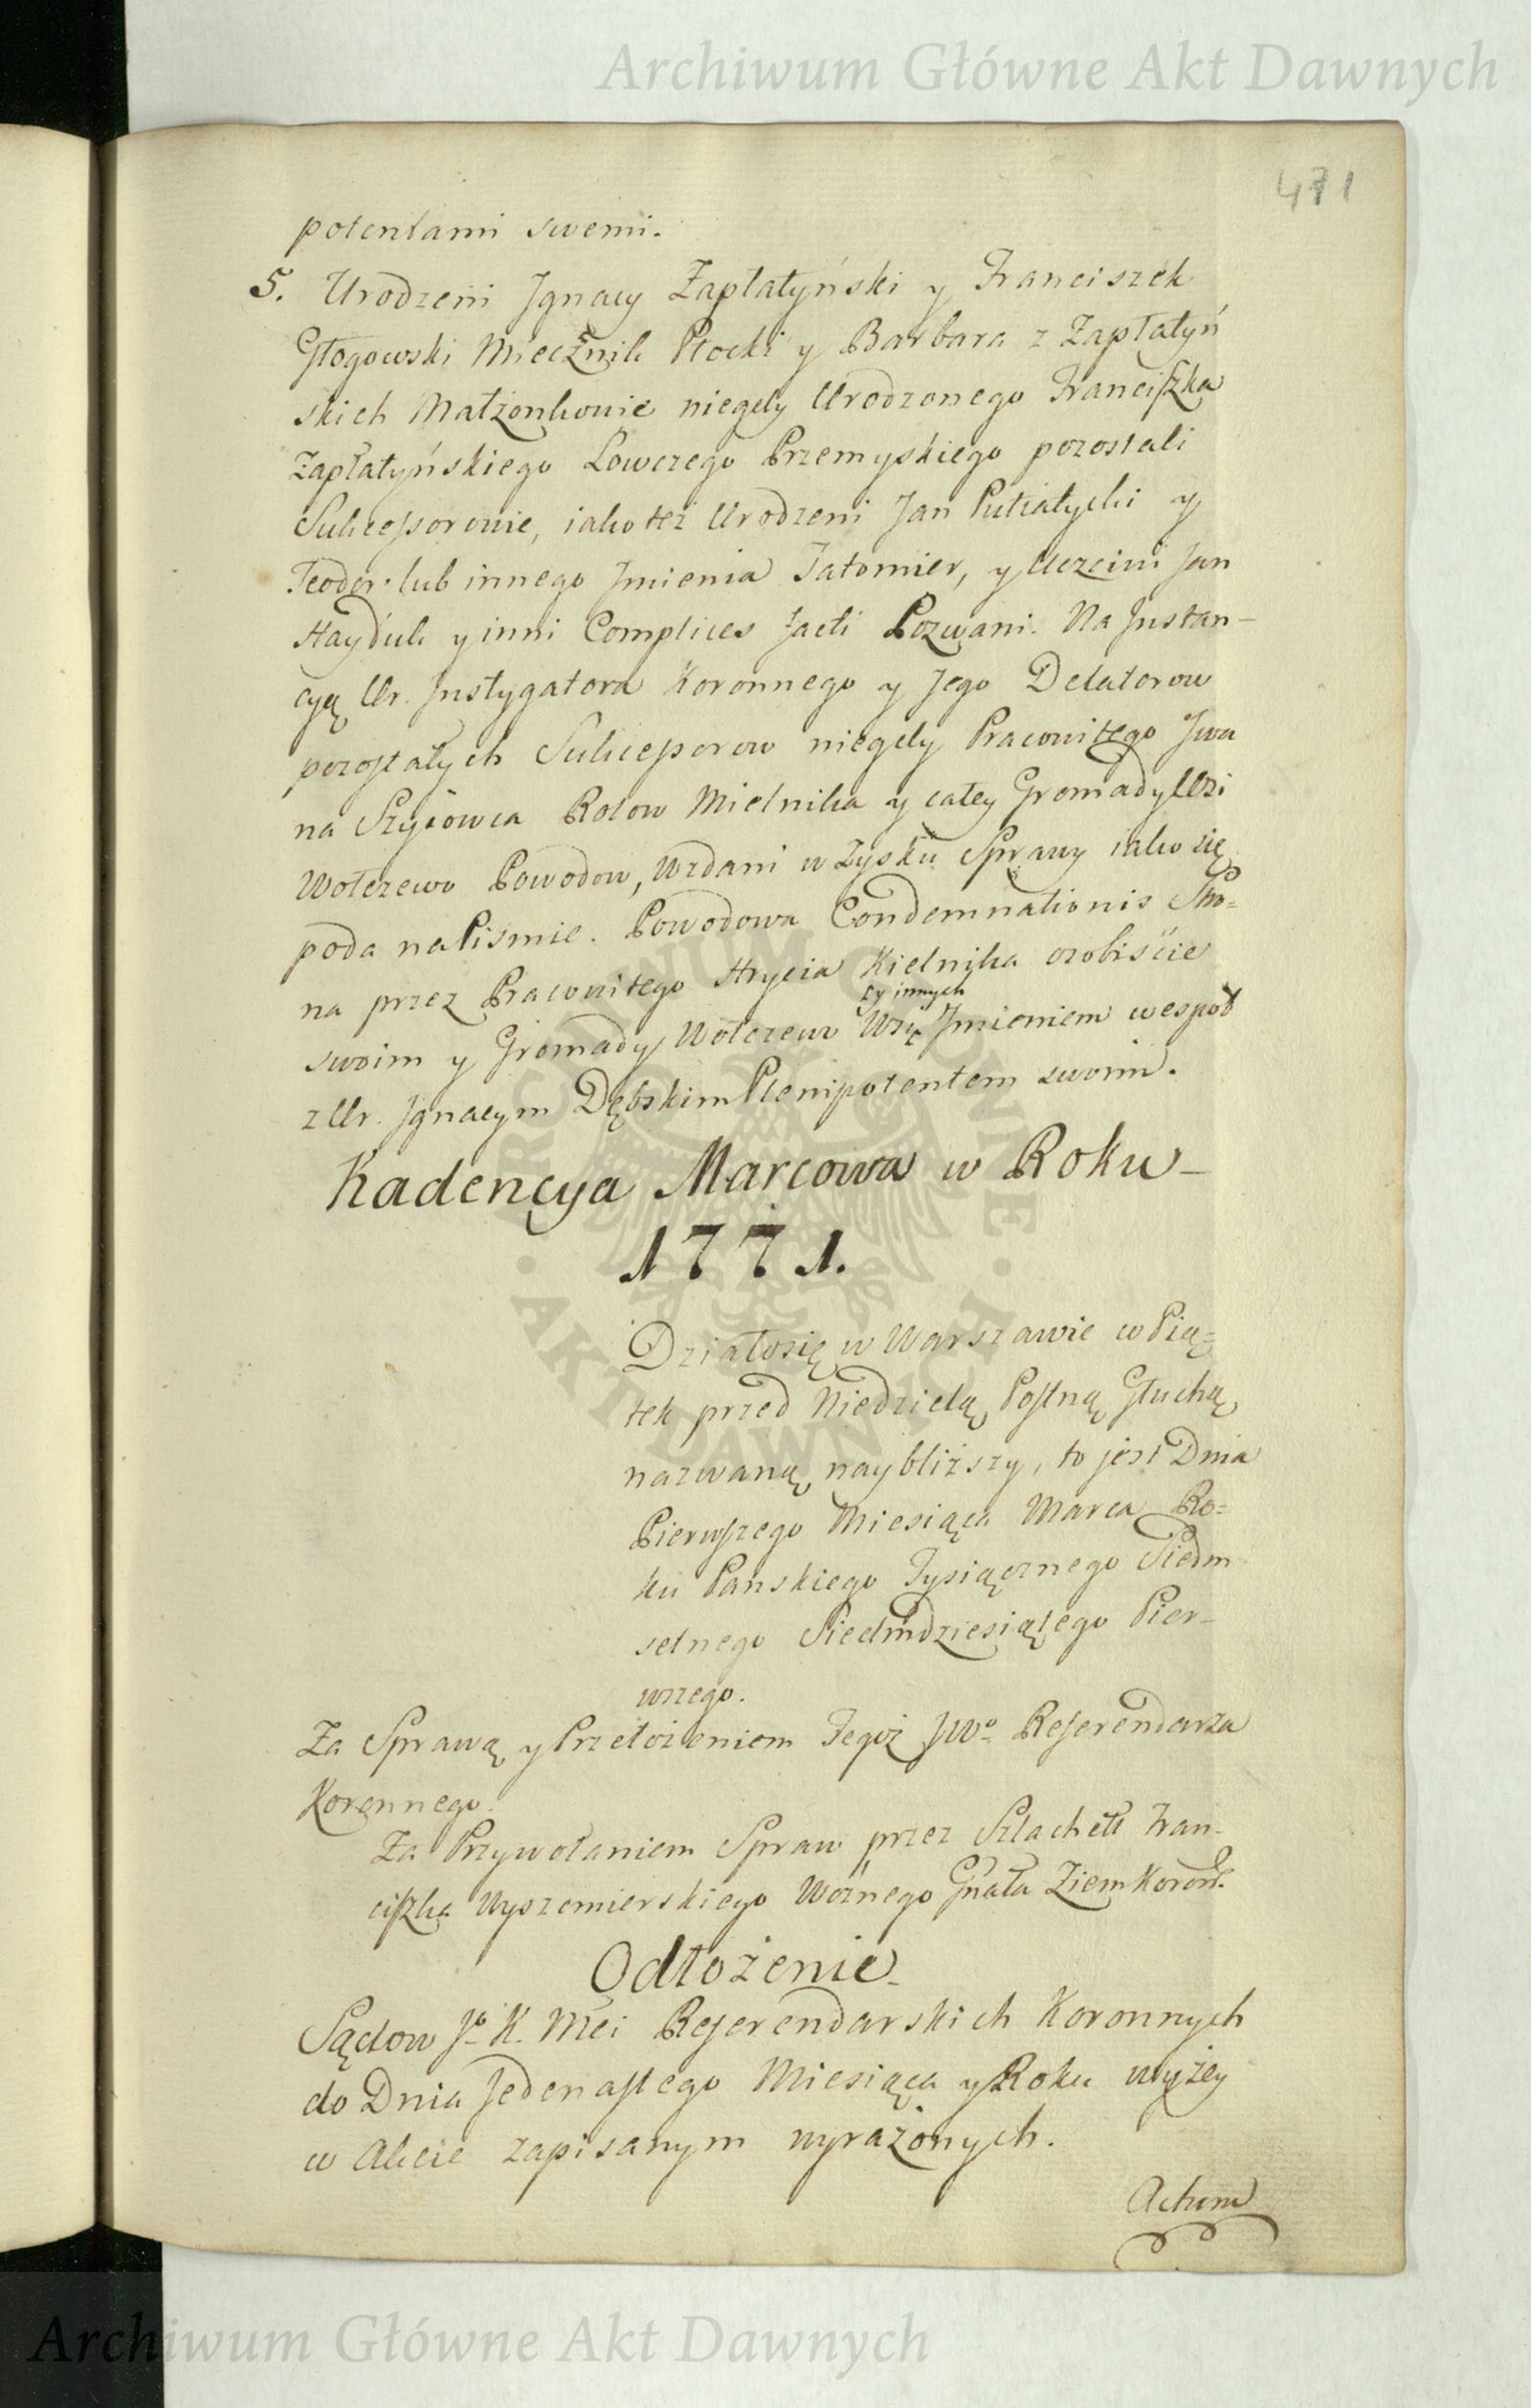 Archiwum Główne Akt Dawnych
471
potentami swemi.
5. Urodzeni Jgnacy Zapłatyński y Franciszek
Głogowski Miecznik Płocki y Barbara z Zapłatyń
skich Małżonkowie niegdy Urodzonego Franciszka
Zapłatyńskiego Łowczego Przemyskiego pozostali
Sukcessorowie, iako też Urodzeni Jan Putiatycki y
Teodor lub innego Jmienia Tatomier, y Uczciwi Jan
Hayduk y inni Complices facti Pozwani. Na Jnstan-
cyą Ur. Jnstygatora Koronnego y Jego Delatorow
pozostałych Sukcessorow niegdy Pracowitego Jwa
na Mielnika y całey Gromady Wsi
Wołczewo Powodow, Wzdani w Zysku Sprawy iako się
poda na Pismie. Powodowa Condemnationis Stro=
na przez Pracowitego Hrycia Kielnika osobiście
y innych
swoim y Gromady Wołczew Wsię Jmieniem wespoł
z Ur. Jgnacym Dębskim Plenipotentem swoim.
Kadencya Marcowa w Roku-
1771.
Działosię w Warszawie w Pią=
tek przed Niedzielą Postną Głuchą
nazwaną naybliższy, to jest Dnia
Pierwszego Miesiąca Marca Ro=
ku Panskiego Tysiącznego Siedm
setnego Siedmdziesiątego Pier-
wszego.
Za Sprawą y Przełożeniem Tegoż JWo Referendarza
Koronnego.
Za Przywołaniem Spraw przez Szlachett Fran-
ciszka Wyszomierskiego Woźnego Gnała Ziem Koron.
Odłożenie
Sądow Jo K. Mci Referendarskich Koronnych
do Dnia Jedenastego Miesiąca y Roku wyżey
w Akcie zapisanym wyrażonych.
Actum
Archiwum Główne Akt Dawnych